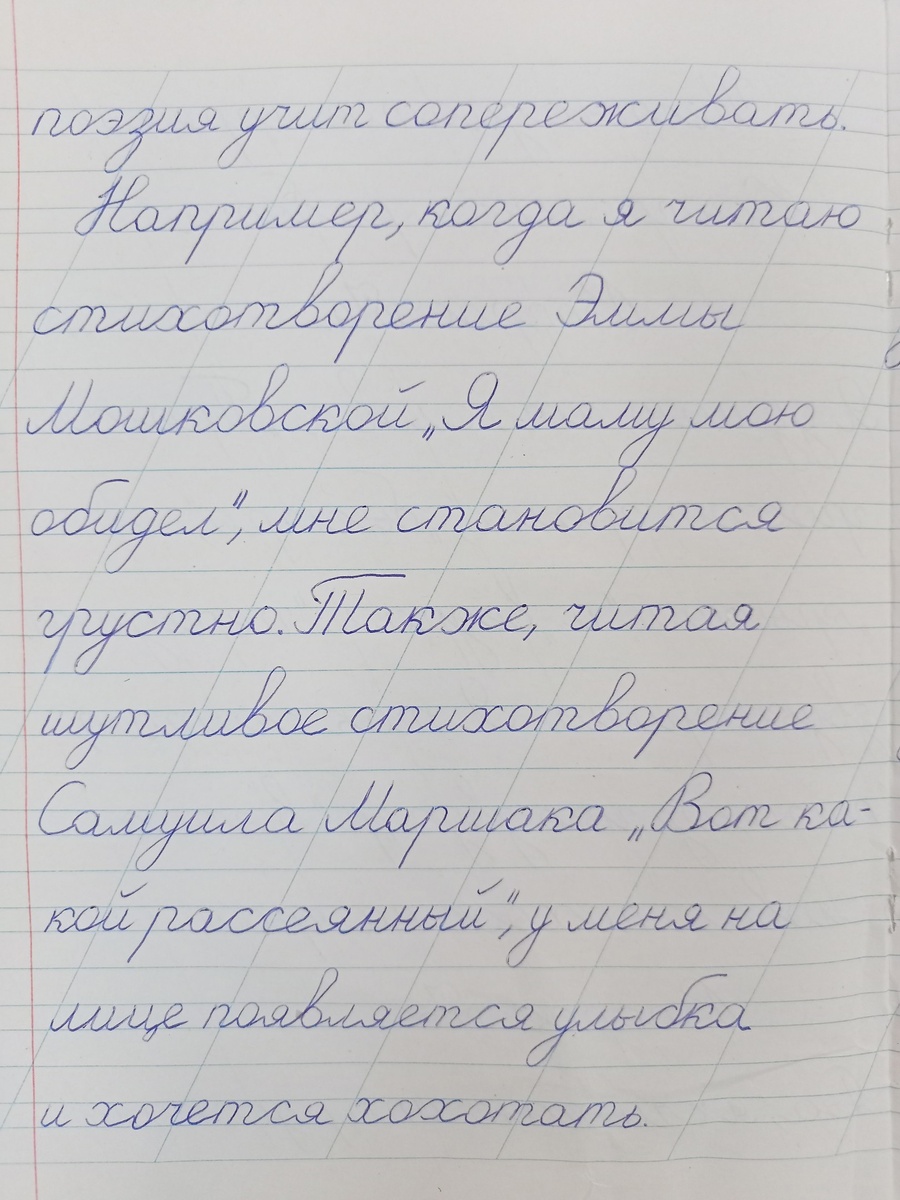 поэзия учит сопереживать.
Например, когда я читаю
стихотворение Эммы
Мошковской „Я маму мою
обидел", мне становится
грустно. Также, читая
шутливое стихотворение
Самуила Маршака „Вот ка-
кой рассеянный", у меня на
лице появляется улыбка
и хочется хохотать.